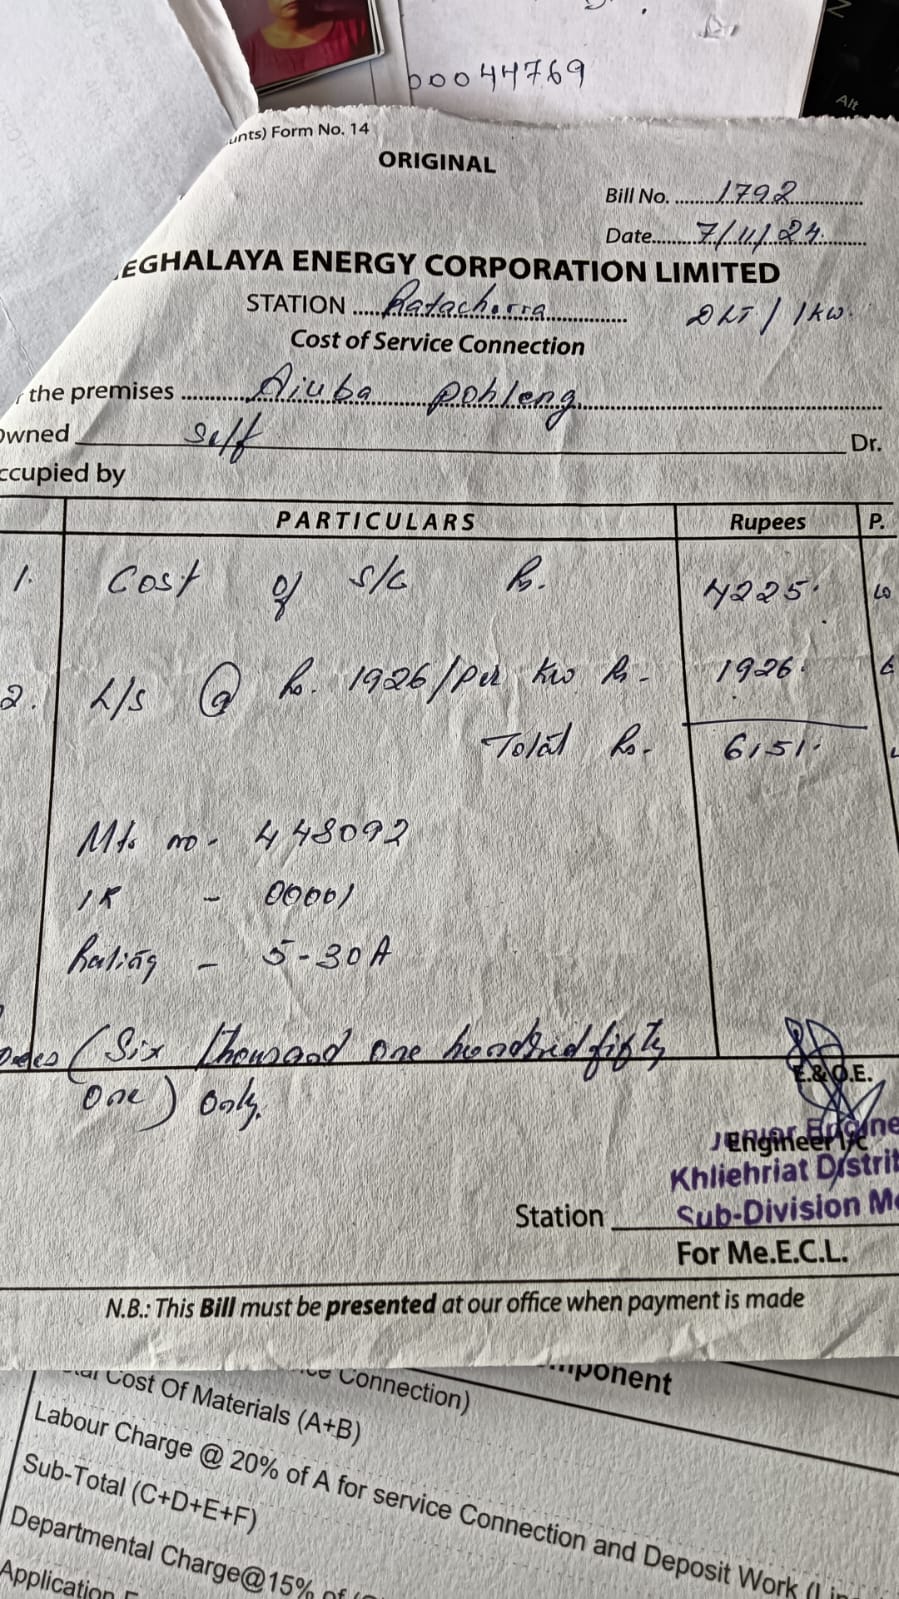 00044769
Alt
unts) Form No. 14
ORIGINAL
Bill No. 1792
Date 7/11/24.
EGHALAYA ENERGY CORPORATION LIMITED
STATION Ratacherra DLT / 1kw.
Cost of Service Connection
the premises Aiuba Pohleng
Owned self Dr.
ccupied by
PARTICULARS Rupees P.
1. Cost of S/C Rs. 4225.
2. L/S @ Rs. 1926/per kw Rs - 1926.
Total Rs. 6151.
Mtr no - 448092
IR - 00001
Rating - 5-30A
(Six thousand one hundred fifty
one) Only.
E.& O.E.
Junior Engine
Engineer I/c
Khliehriat Distri
Sub-Division Me
Station
For Me.E.C.L.
N.B.: This Bill must be presented at our office when payment is made
Connection) mponent
Cost Of Materials (A+B)
Labour Charge @ 20% of A for service Connection and Deposit Work (Lin
Sub-Total (C+D+E+F)
Departmental Charge@15% of
Application